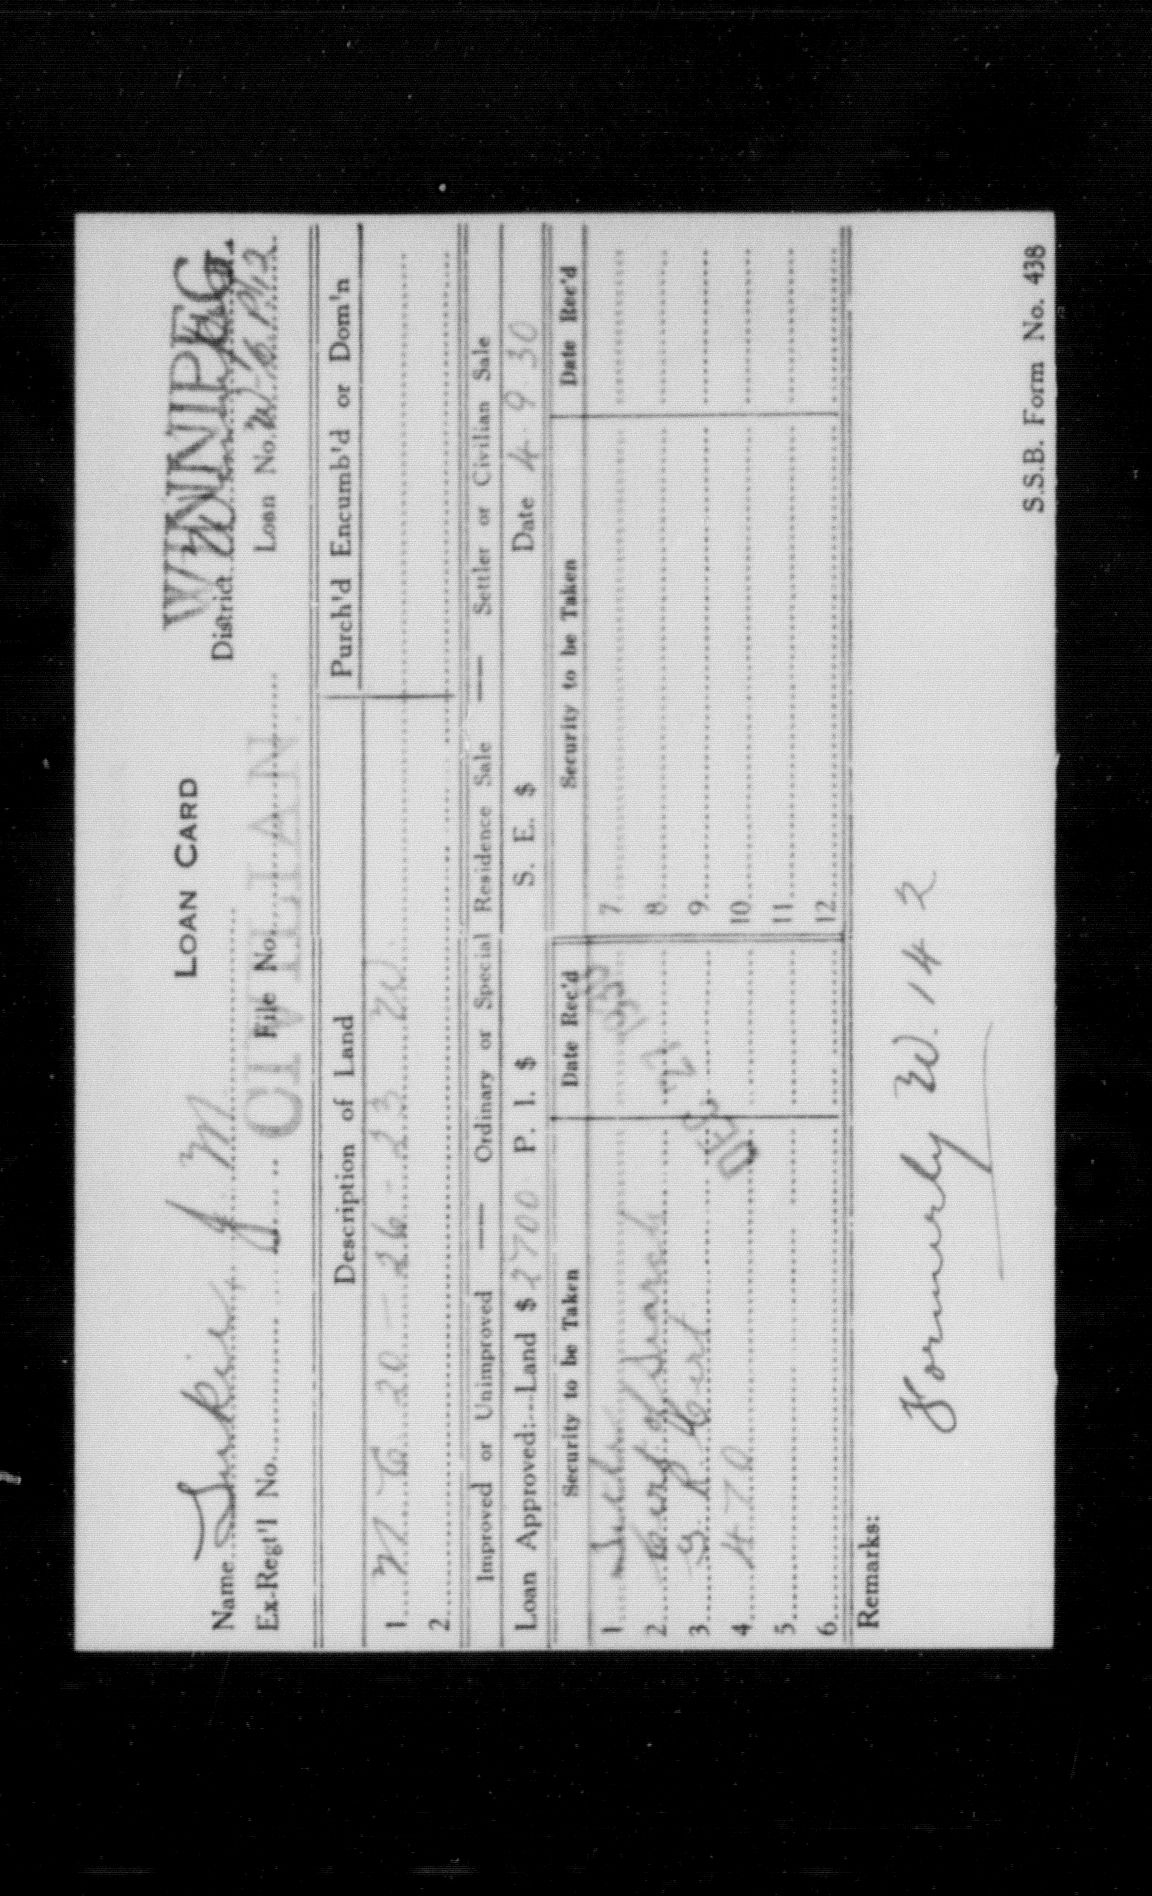 LOAN CARD
WINNIPEG
Name J. M.
District Winnipeg
Ex-Regt'l No.
File No.
CIVILIAN
Loan No.
Description of Land
Purch'd Encumb'd or Dom'n
1 N E 20 - 26 - 23 W.
2
Improved or Unimproved — Ordinary or Special Residence Sale — Settler or Civilian Sale
Loan Approved:—Land $ 2700 P. I. $ S. E. $ Date 4 9 30
Security to be Taken Date Rec'd Security to be Taken Date Rec'd
1 7
2 Cert of Search 8
3 G R Cert 9
4 470 10
5 11
6 12
DEC 2
Remarks:
Formerly W. 142
S.S.B. Form No. 438